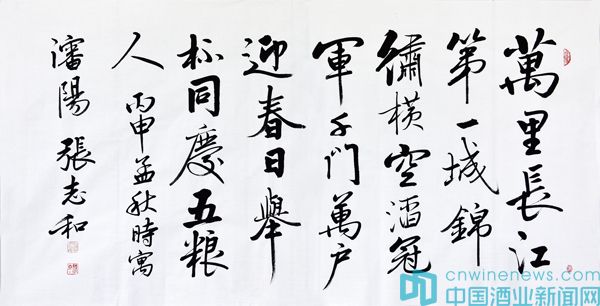 萬里長江
第一城錦
繡橫空酒冠
軍千門萬户
迎春日舉
杯同慶五粮
人 丙申孟秋時寓
瀋陽 張志和
cnwinenews.com
中国酒业新闻网